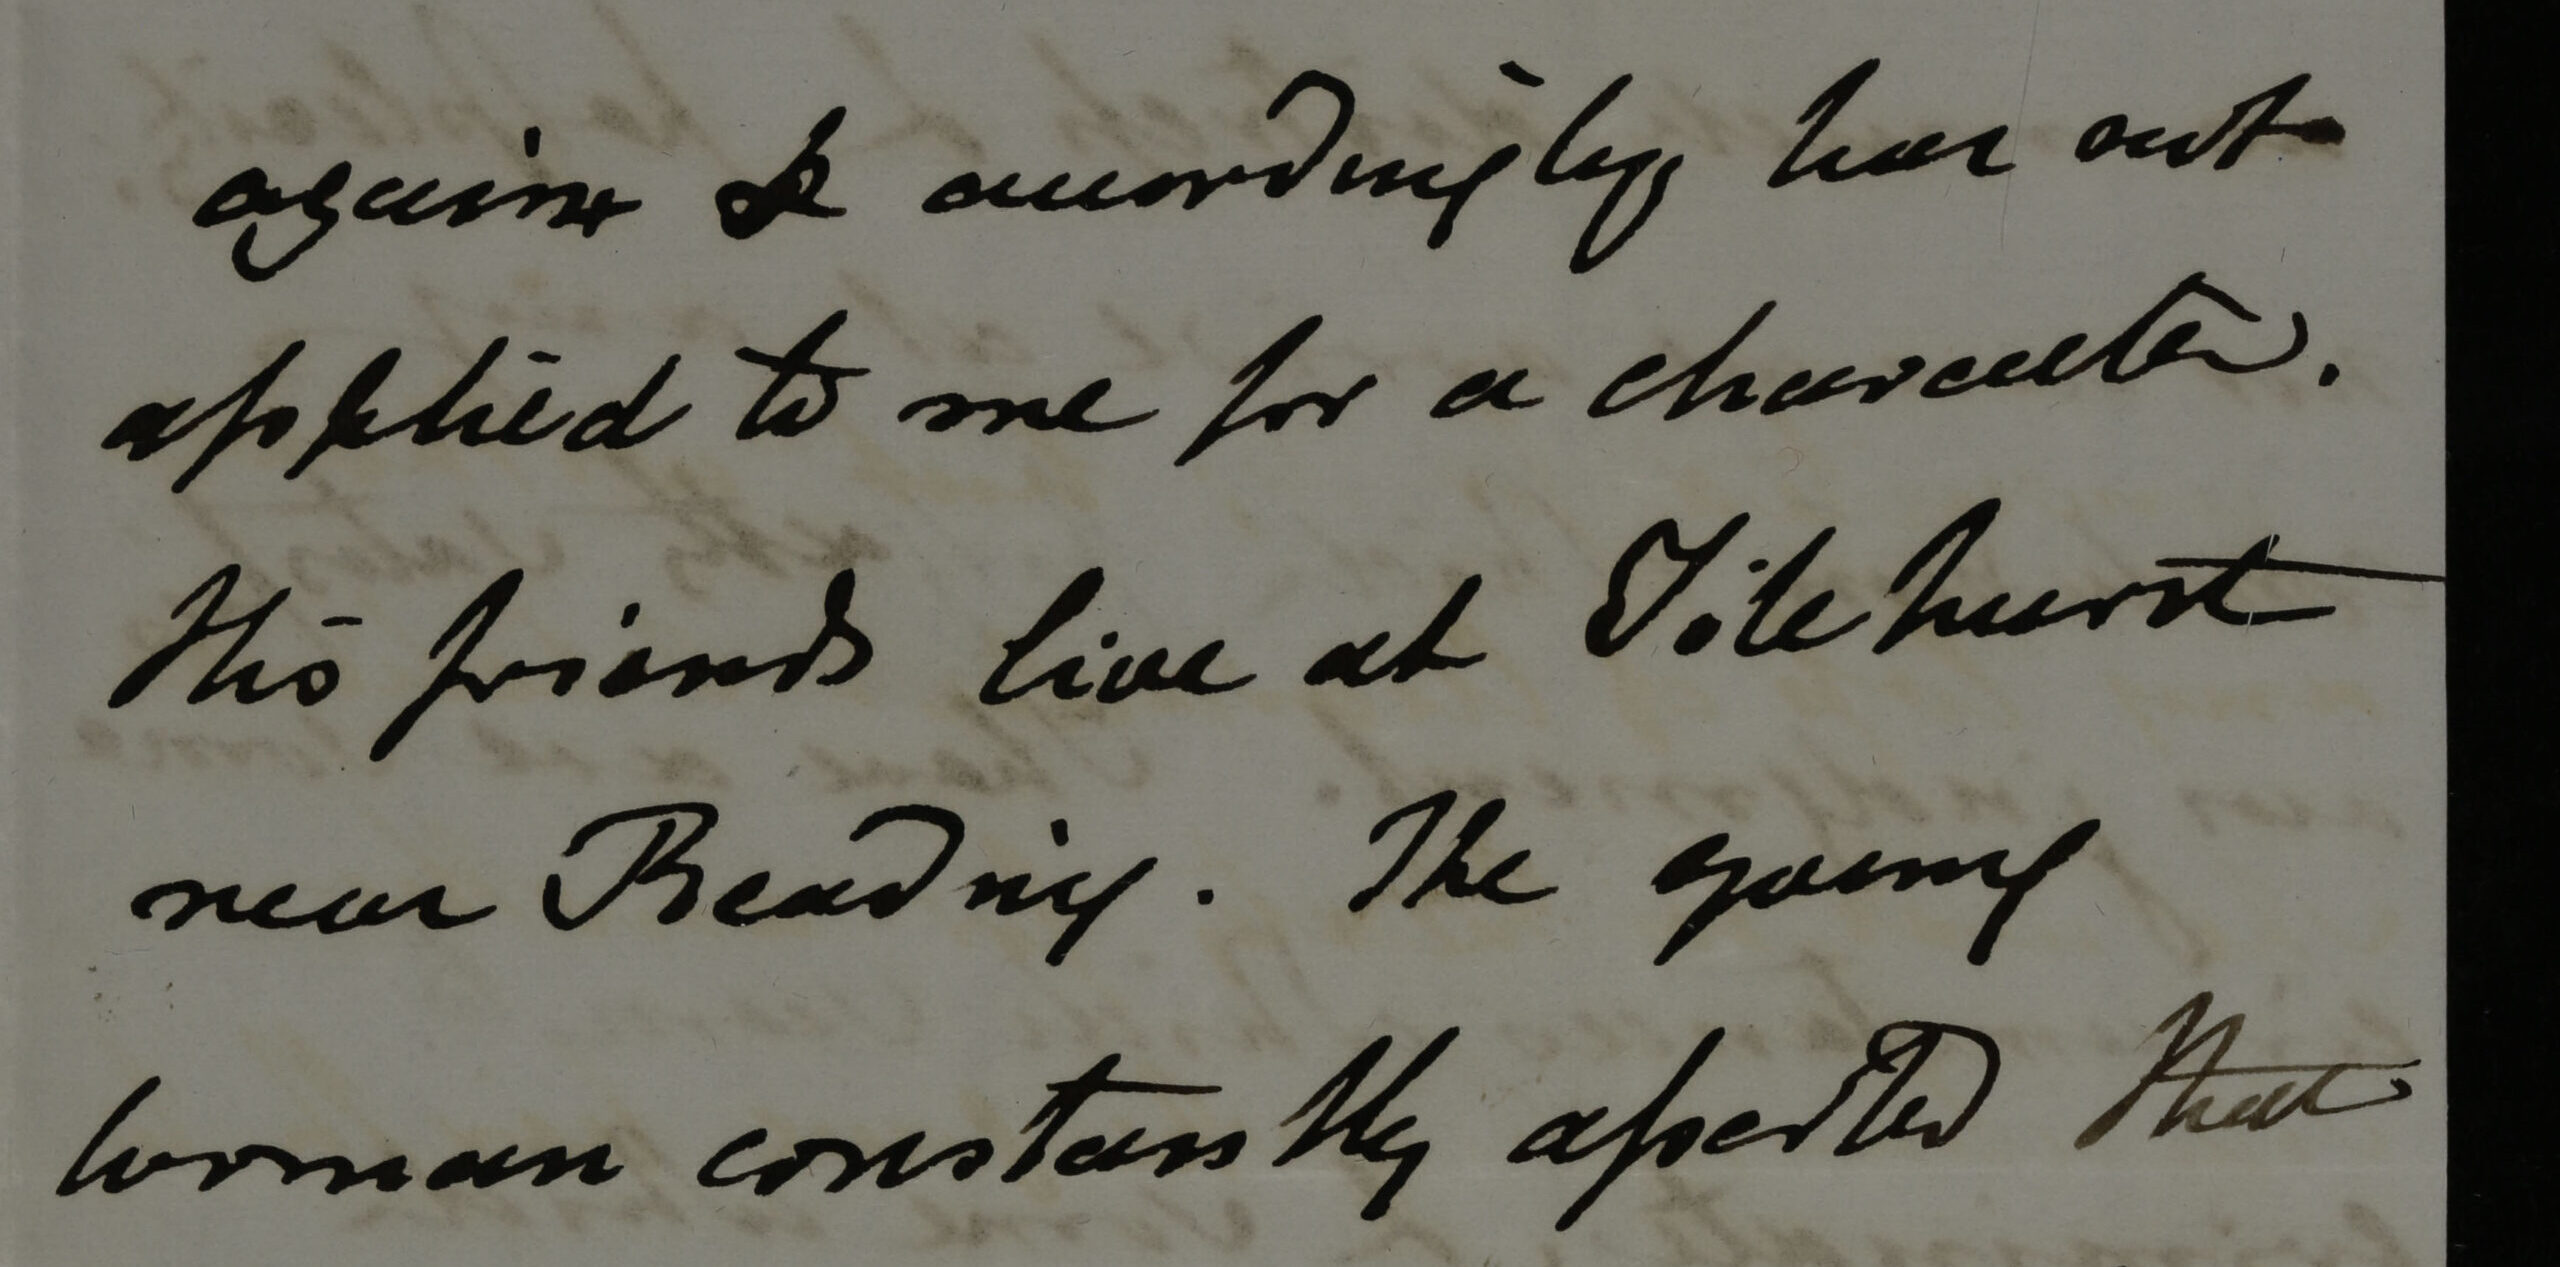 again & accordingly has not
applied to me for a character.
His friends live at Tilehurst
near Reading. The young
woman constantly asserted that